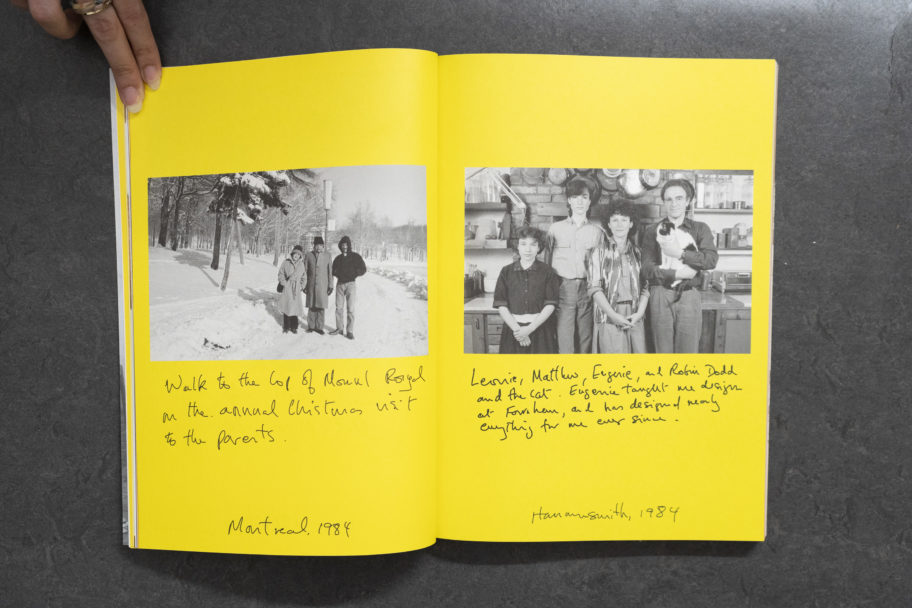 Walk to the top of Mount Royal
on the annual Christmas visit
to the parents.
Montreal, 1984
Leonie, Matthew, Eugenie, and Robin Dodd
and the cat. Eugenie taught me design
at Farnham, and has designed nearly
everything for me ever since.
1984